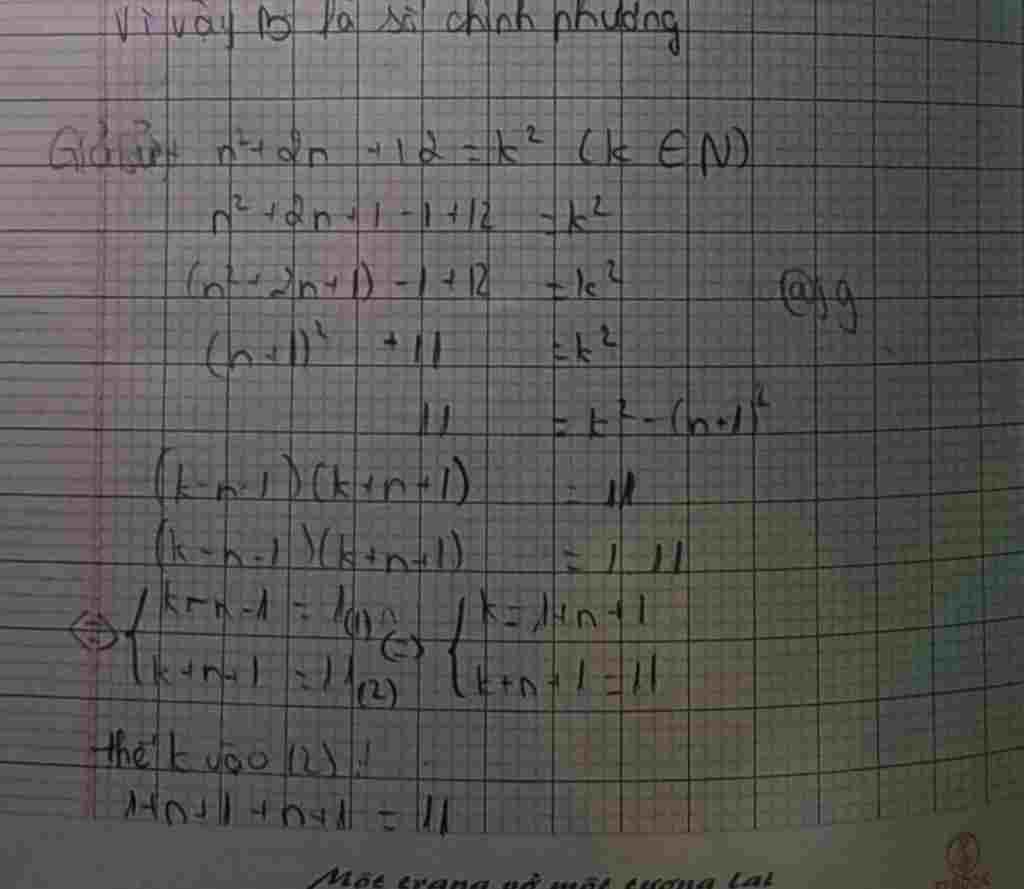 Vì vậy B là số chính phương
Giả sử n² + 2n + 12 = k² (k ∈ N)
n² + 2n + 1 - 1 + 12 = k²
(n² + 2n + 1) - 1 + 12 = k²
(n + 1)² + 11 = k²
11 = k² - (n + 1)²
(k - n - 1)(k + n + 1) = 11
(k - n - 1)(k + n + 1) = 1 . 11
⇔ { k - n - 1 = 1 (1) ⇔ { k = 1 + n + 1
k + n + 1 = 11 (2) k + n + 1 = 11
thế k vào (2):
1 + n + 1 + n + 1 = 11
Một trang vở một tương lai